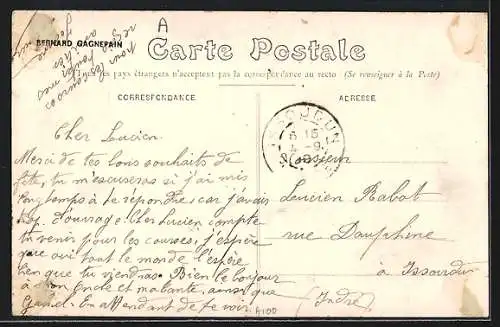 A
BERNARD GAGNEPAIN
Carte Postale
pays étrangers n'acceptent pas la correspondance au recto (Se renseigner à la Poste)
CORRESPONDANCE
ADRESSE
ISSOUDUN
6 15
4-9
Cher Lucien
Merci de tes bons souhaits de
fête, tu m'excuseras si j'ai mis
longtemps à te répondre, car j'avais
trop d'ouvrage. Cher Lucien compte
tu venir pour les courses, j'espère
que oui tout le monde l'espère
bien que tu viendras. Bien le bonjour
à ton Oncle et ma tante, ainsi que
En attendant de te voir
Monsieur
Lucien Rabot
rue Dauphine
à Issoudun
(Indre)
A100